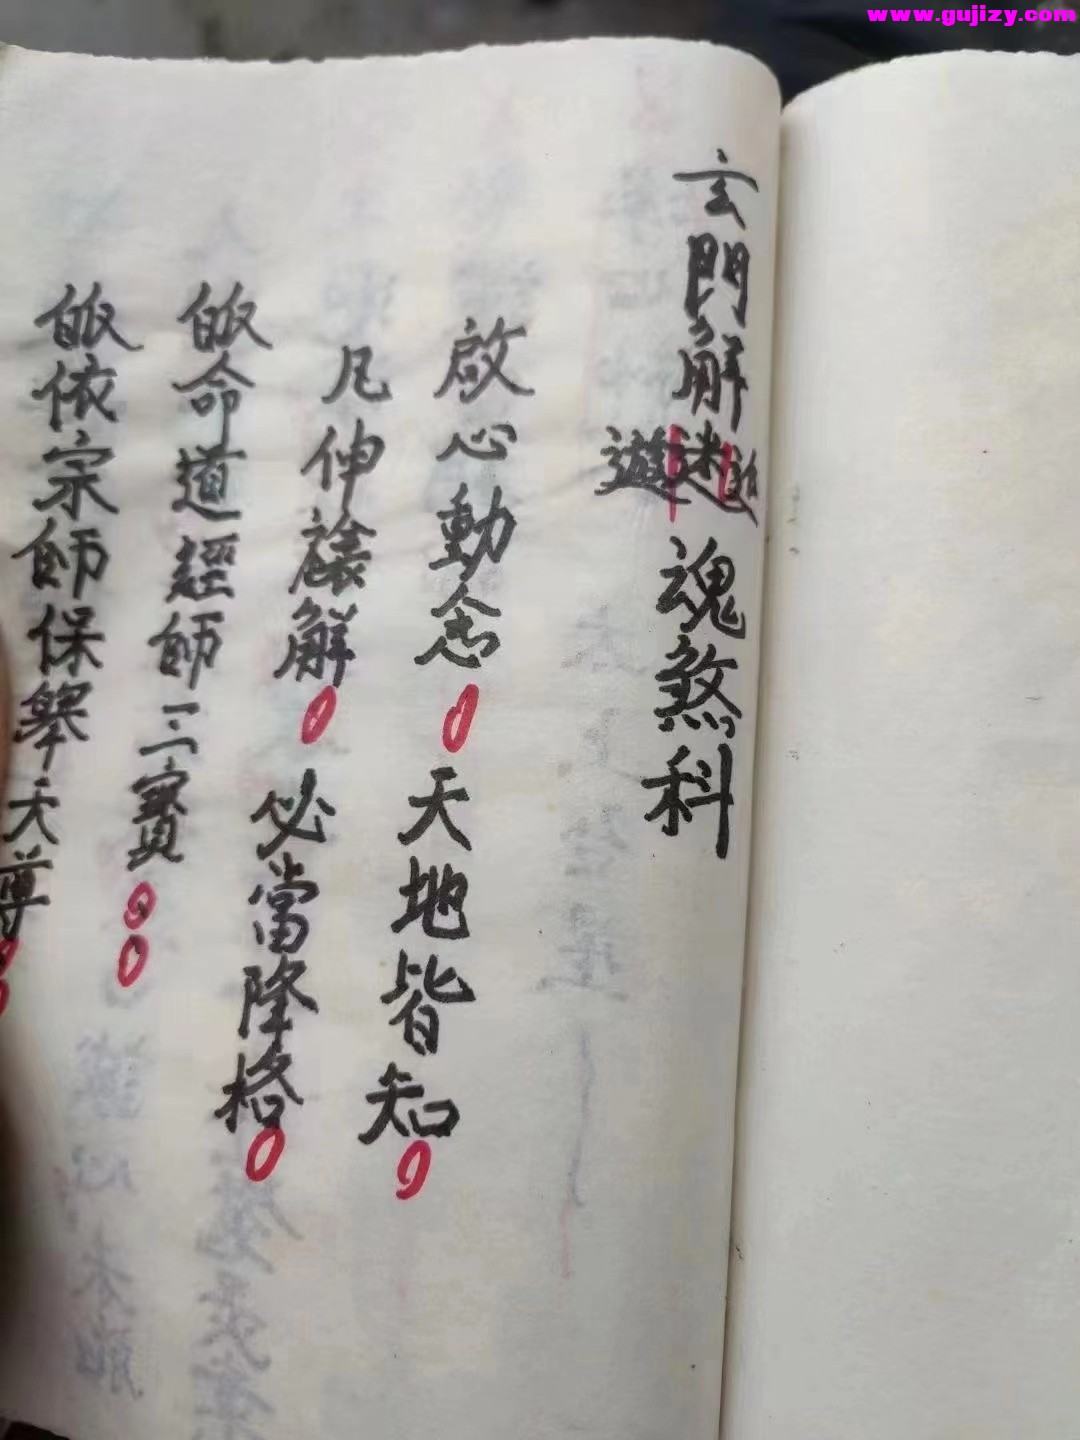 www.gujizy.com
玄門解迷遊魂煞科
啟心動念天地皆知
凡伸禳解必當降格
皈命道經師三寶
皈依宗師保舉天尊